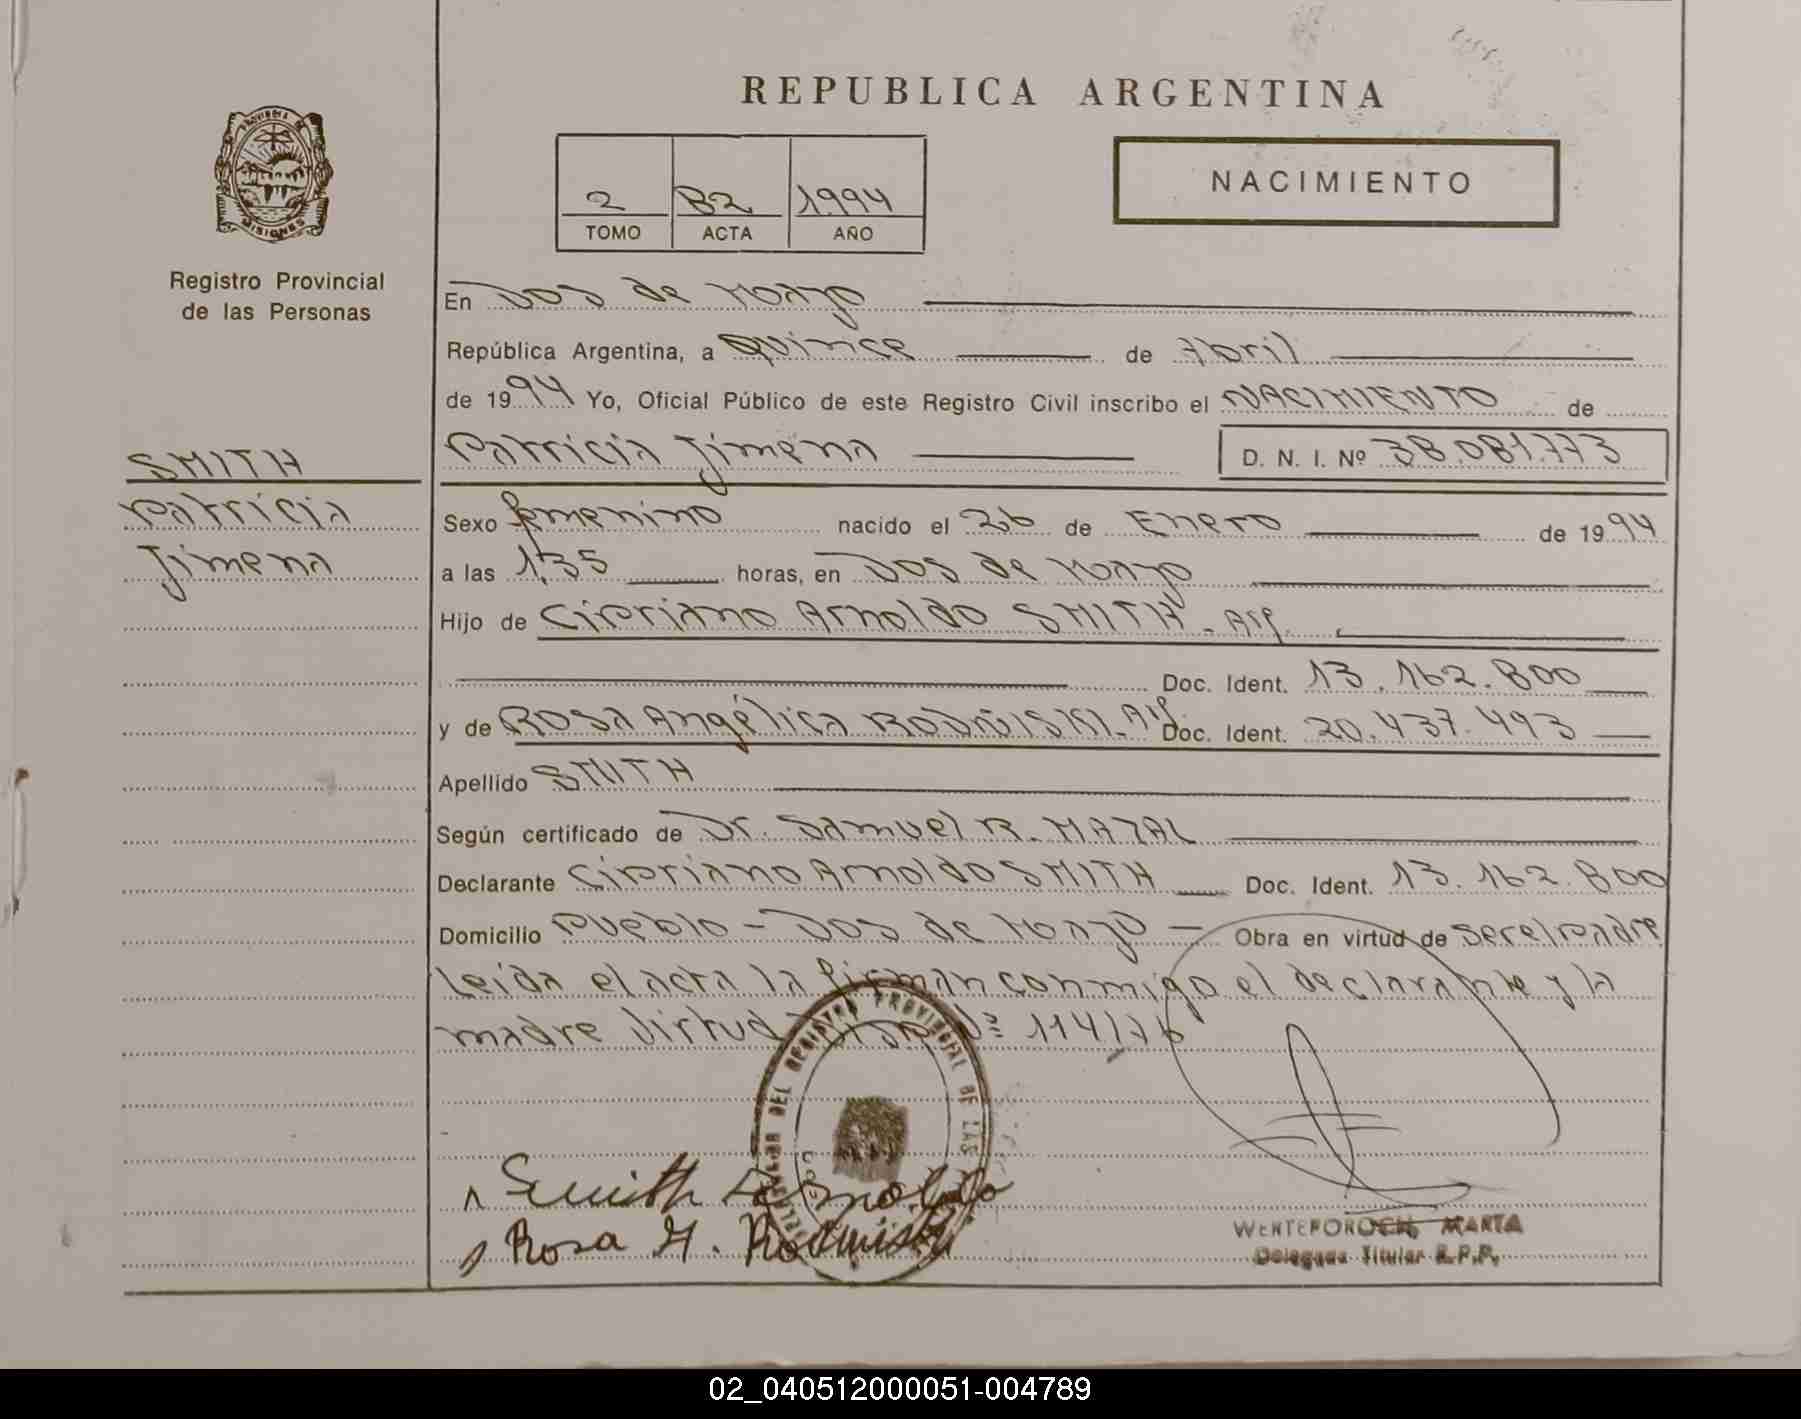 REPUBLICA ARGENTINA
PROVINCIA DE
MISIONES
Registro Provincial
de las Personas
NACIMIENTO
2 82 1994
TOMO ACTA AÑO
En Dos de Mayo
República Argentina, a quince de Abril
de 1994 Yo, Oficial Público de este Registro Civil inscribo el NACIMIENTO de
Patricia Jimena D. N. I. Nº 38.081.773
SMITH
Patricia
Jimena
Sexo femenino nacido el 26 de Enero de 1994
a las 1,35 horas, en Dos de Mayo
Hijo de Cipriano Arnoldo SMITH - Arg.
Doc. Ident. 13.162.800
y de Rosa Angélica RODUISKI - Arg. Doc. Ident. 20.437.493
Apellido SMITH
Según certificado de Dr. Samuel R. MAZAL
Declarante Cipriano Arnoldo SMITH Doc. Ident. 13.162.800
Domicilio Pueblo - Dos de Mayo - Obra en virtud de ser el padre
Leída el acta la firman conmigo el declarante y la
madre virtud Nº 114/76
REGISTRO PROVINCIAL DE LAS
Smith Arnoldo
Rosa A.
WERTEPOROCH, MARTA
Delegada Titular R.P.P.
02_040512000051-004789